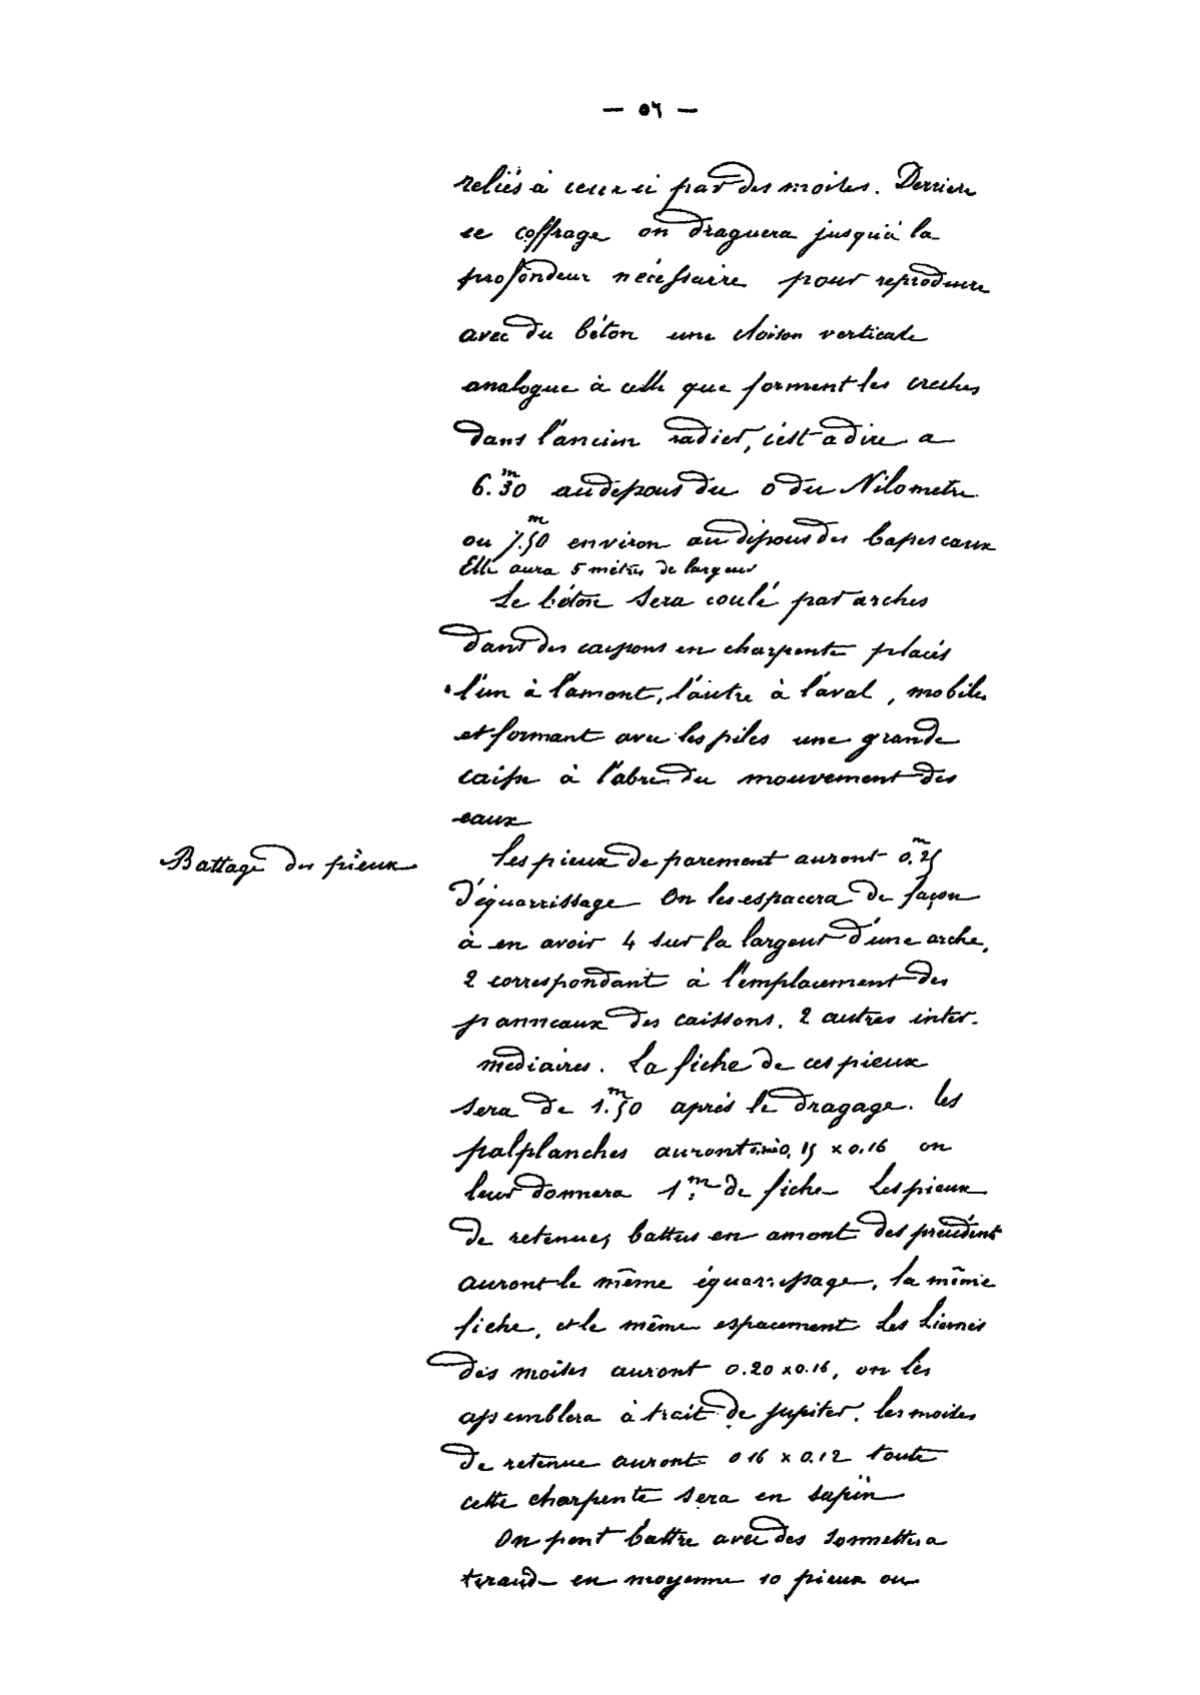 — ٥٦ —
reliés à ceux ci par des moises. Derriere
ce coffrage on draguera jusqu'à la
profondeur nécessaire pour reproduire
avec du béton une cloison verticale
analogue à celle que forment les creches
dans l'ancien radier, c'est a dire a
6.ᵐ30 au dessous du 0 du Nilometre
ou 7.ᵐ50 environ au dessous des basses eaux
Elle aura 5 mètres de largeur
Le béton sera coulé par arches
dans des caissons en charpente placés
l'un à l'amont, l'autre à l'aval, mobiles
et formant avec les piles une grande
caisse à l'abri du mouvement des
eaux
Battage des pieux
Les pieux de parement auront 0.ᵐ25
d'équarrissage On les espacera de façon
à en avoir 4 sur la largeur d'une arche,
2 correspondant à l'emplacement des
panneaux des caissons. 2 autres inter-
mediaires. La fiche de ces pieux
sera de 1.ᵐ50 après le dragage. les
palplanches auront 0.15 x 0.16 on
leur donnera 1.ᵐ de fiche Les pieux
de retenue, battus en amont des précédents
auront le même équarrissage, la même
fiche, et le même espacement Les liernes
des moises auront 0.20 x 0.16, on les
assemblera à trait de jupiter. les moises
de retenue auront 0 16 x 0.12 toute
cette charpente sera en sapin
On peut battre avec des sonnettes a
tiraud en moyenne 10 pieux ou